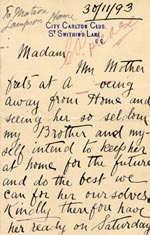 To Matron
Home
30/11/93
CITY CARLTON CLUB,
ST SWITHIN'S LANE,
E.C.
Madam,
My Mother
frets at A being
away from Home and
seeing her so seldom
my Brother and My-
self intend to keep her
at home for the future
and do the best we
can for her ourselves.
Kindly therefore have
her ready on Saturday